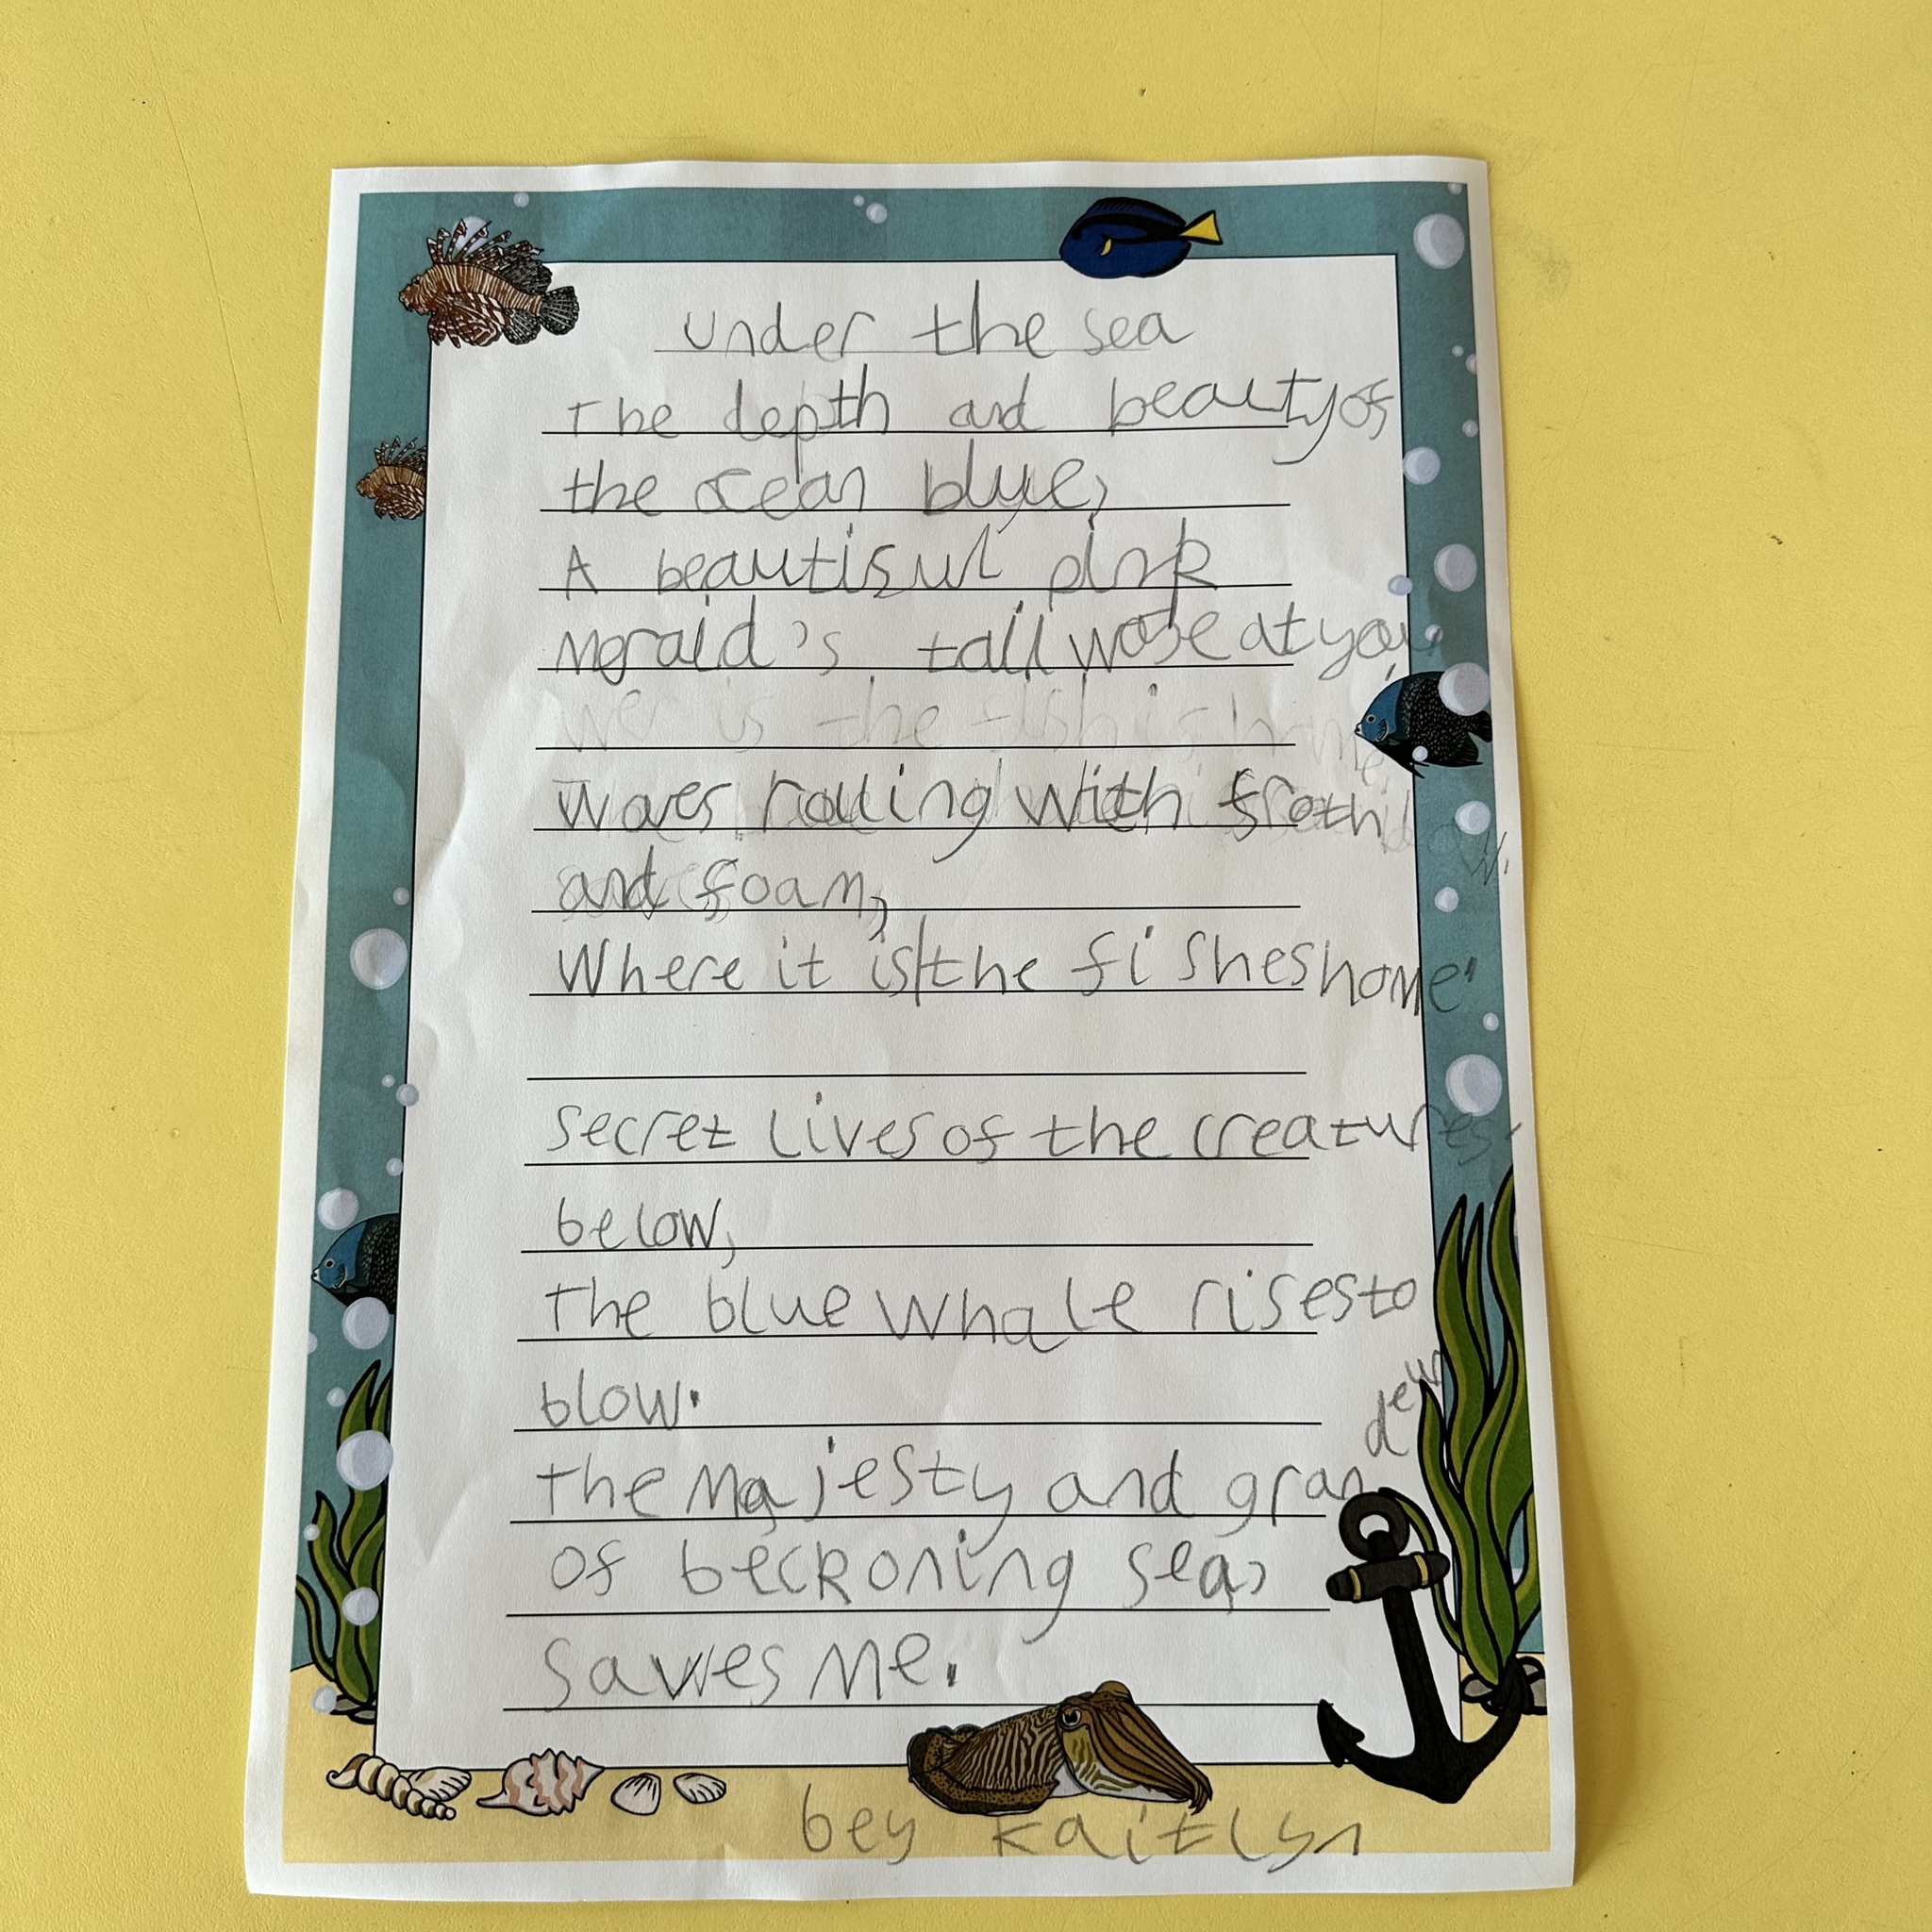 under the sea
The depth and beauty of
the ocean blue,
A beautiful pink
Meraid's tail wose at you,
wer is the fish is home
Waves rolling with froth
and foam,
Where it is the fishes home.
secret lives of the creatures
below,
The blue whale rises to
blow.
The Majesty and grandeur
of beckoning sea,
saves me.
bey kaitlyn